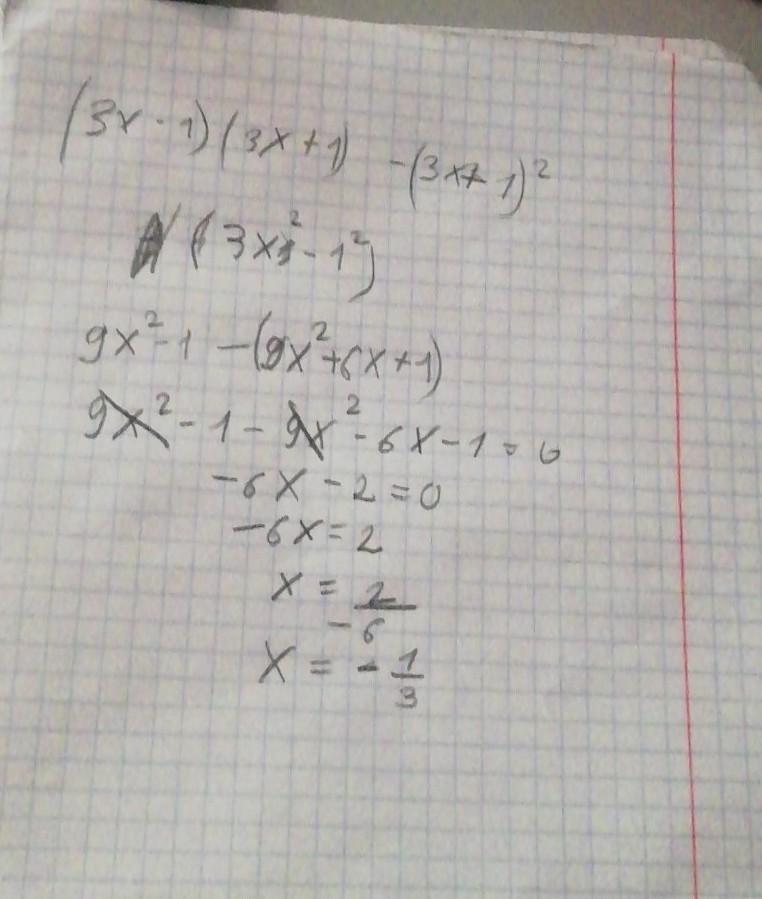 (3x - 1)(3x + 1) - (3x + 1)²
(3x² - 1²)
9x² - 1 - (9x² + 6x + 1)
9x² - 1 - 9x² - 6x - 1 = 0
-6x - 2 = 0
-6x = 2
x = 2/-6
x = - 1/3